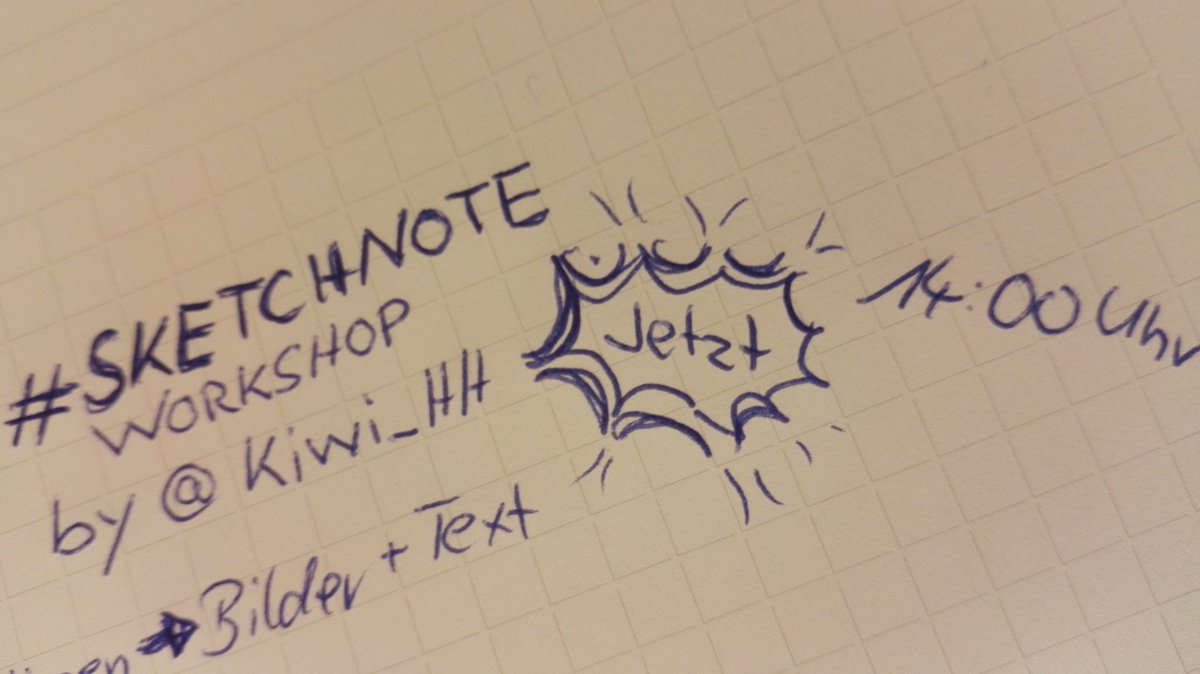 #SKETCHNOTE
WORKSHOP
by @Kiwi_HH
Jetzt
14:00 Uhr
→ Bilder + Text